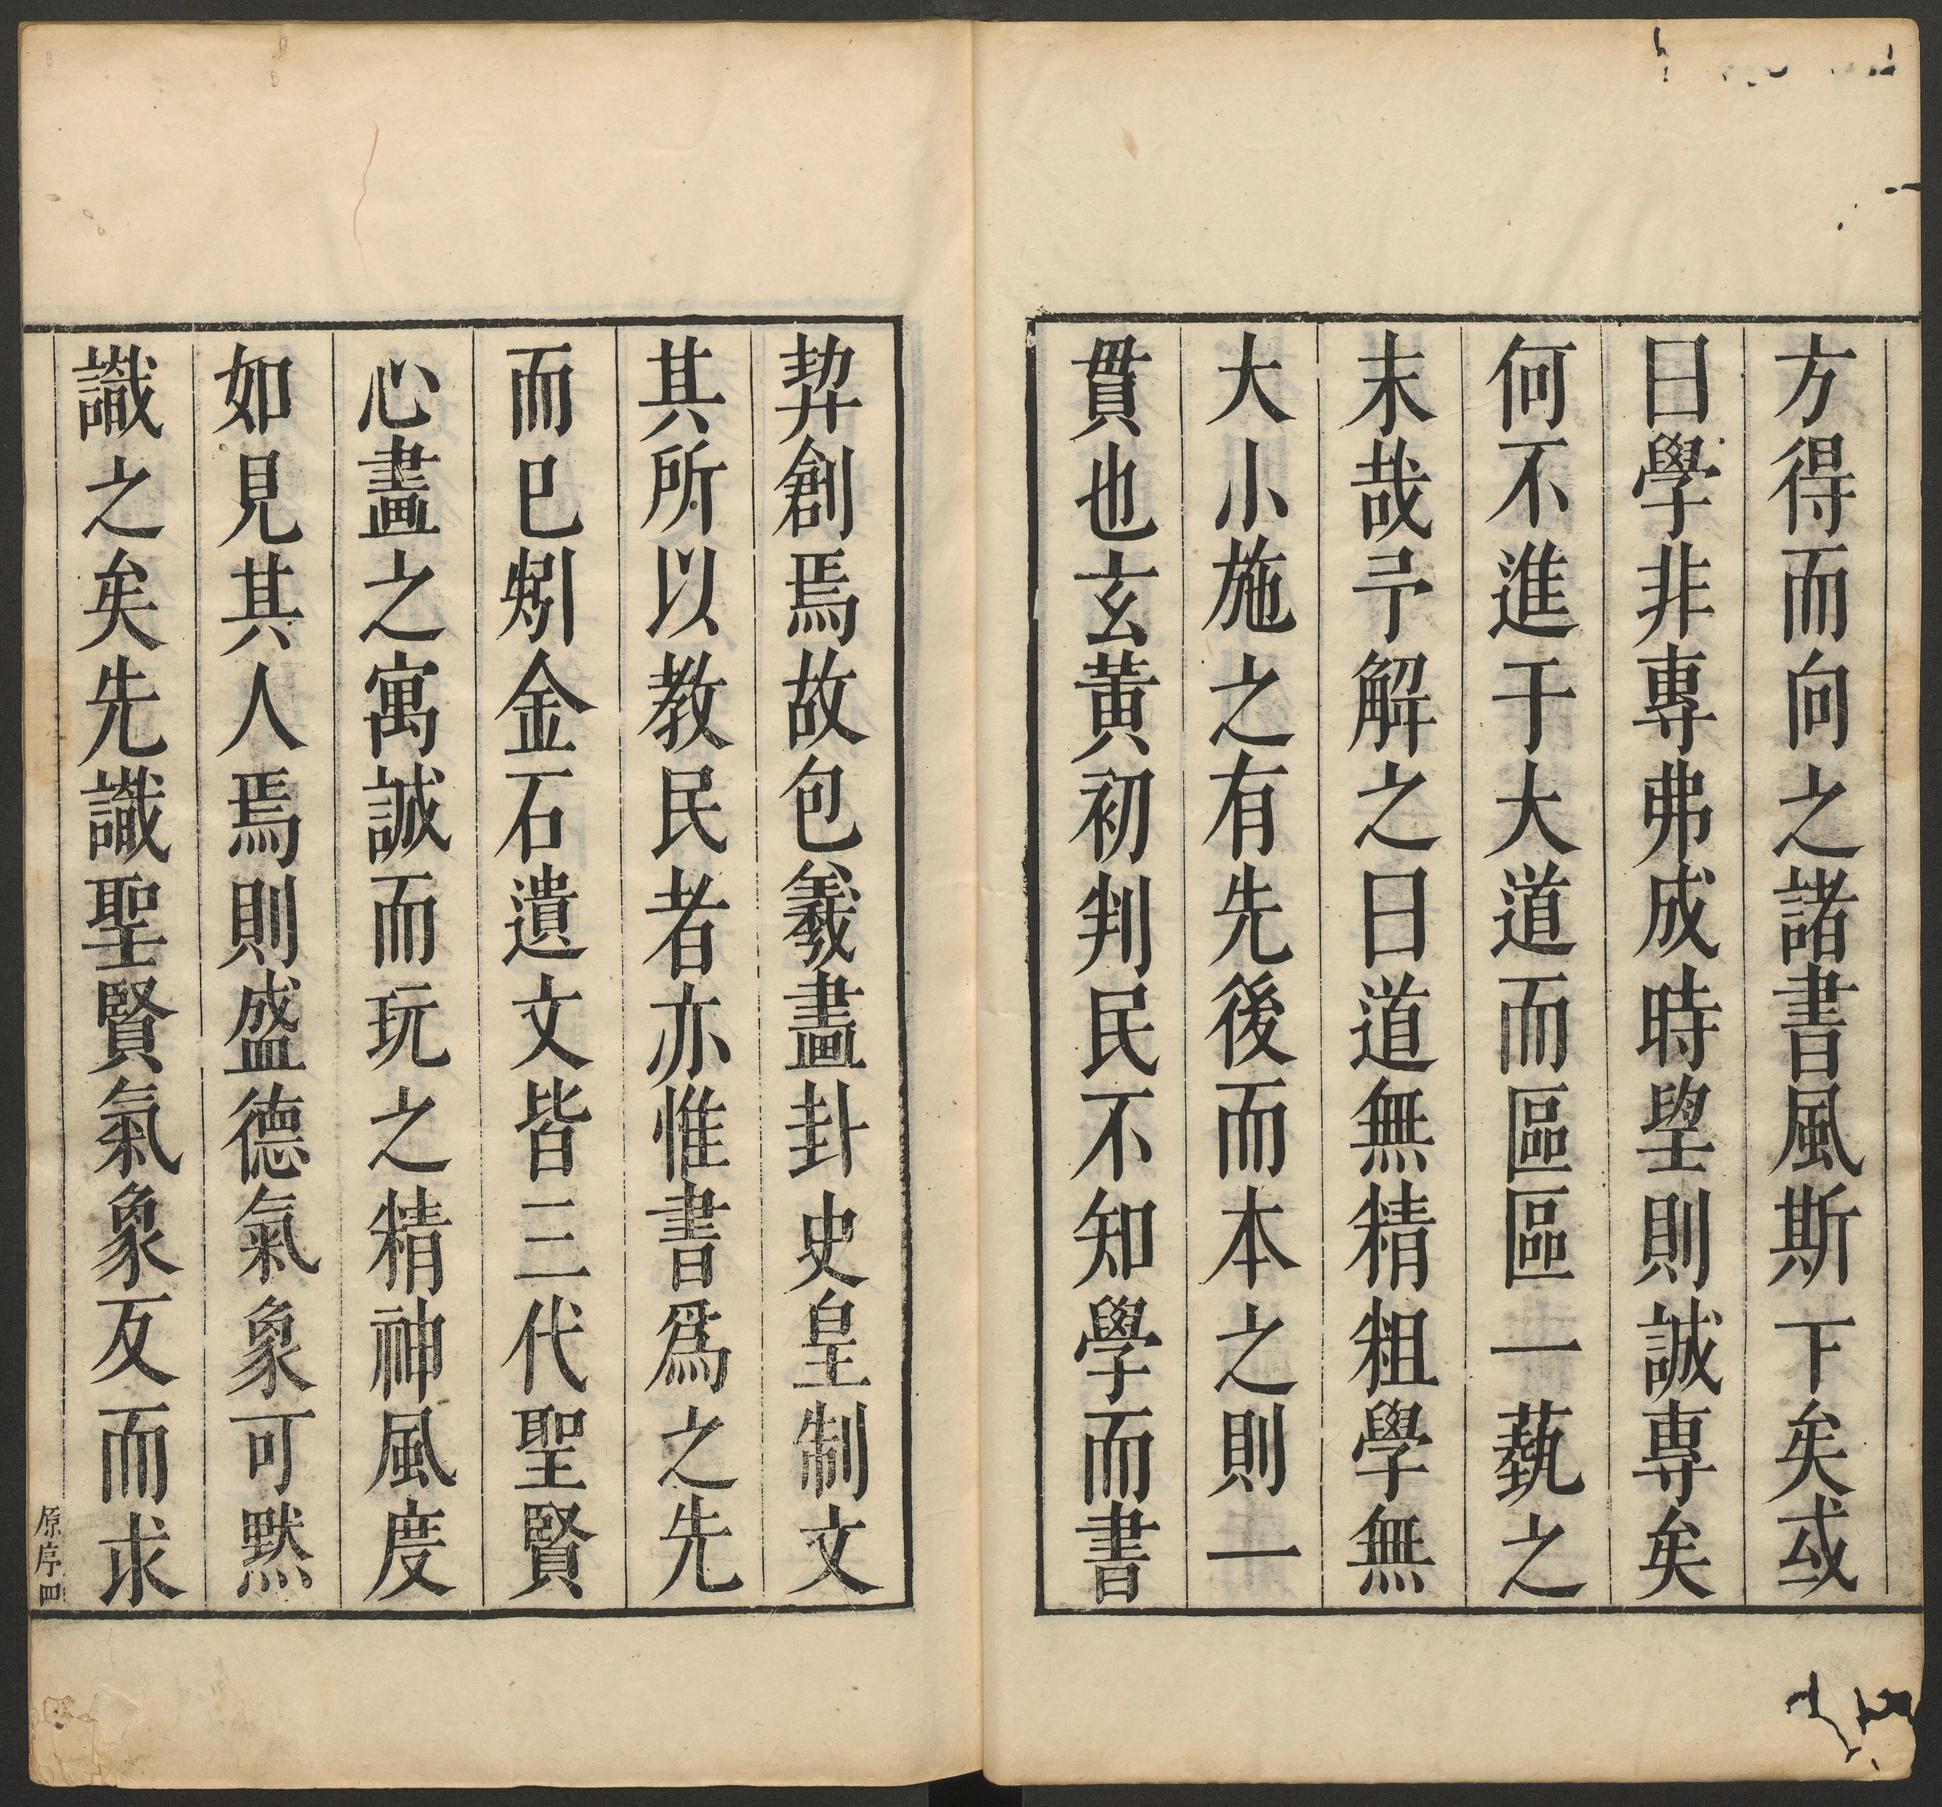 方得而向之諸書風斯下矣或
曰學非專弗成時望則誠專矣
何不進于大道而區區一藝之
末哉予解之曰道無精粗學無
大小施之有先後而本之則一
貫也玄黃初判民不知學而書
契創焉故包羲畫卦史皇制文
其所以教民者亦惟書爲之先
而已矧金石遺文皆三代聖賢
心畫之寓誠而玩之精神風度
如見其人焉則盛德氣象可默
識之矣先識聖賢氣象反而求
原序四